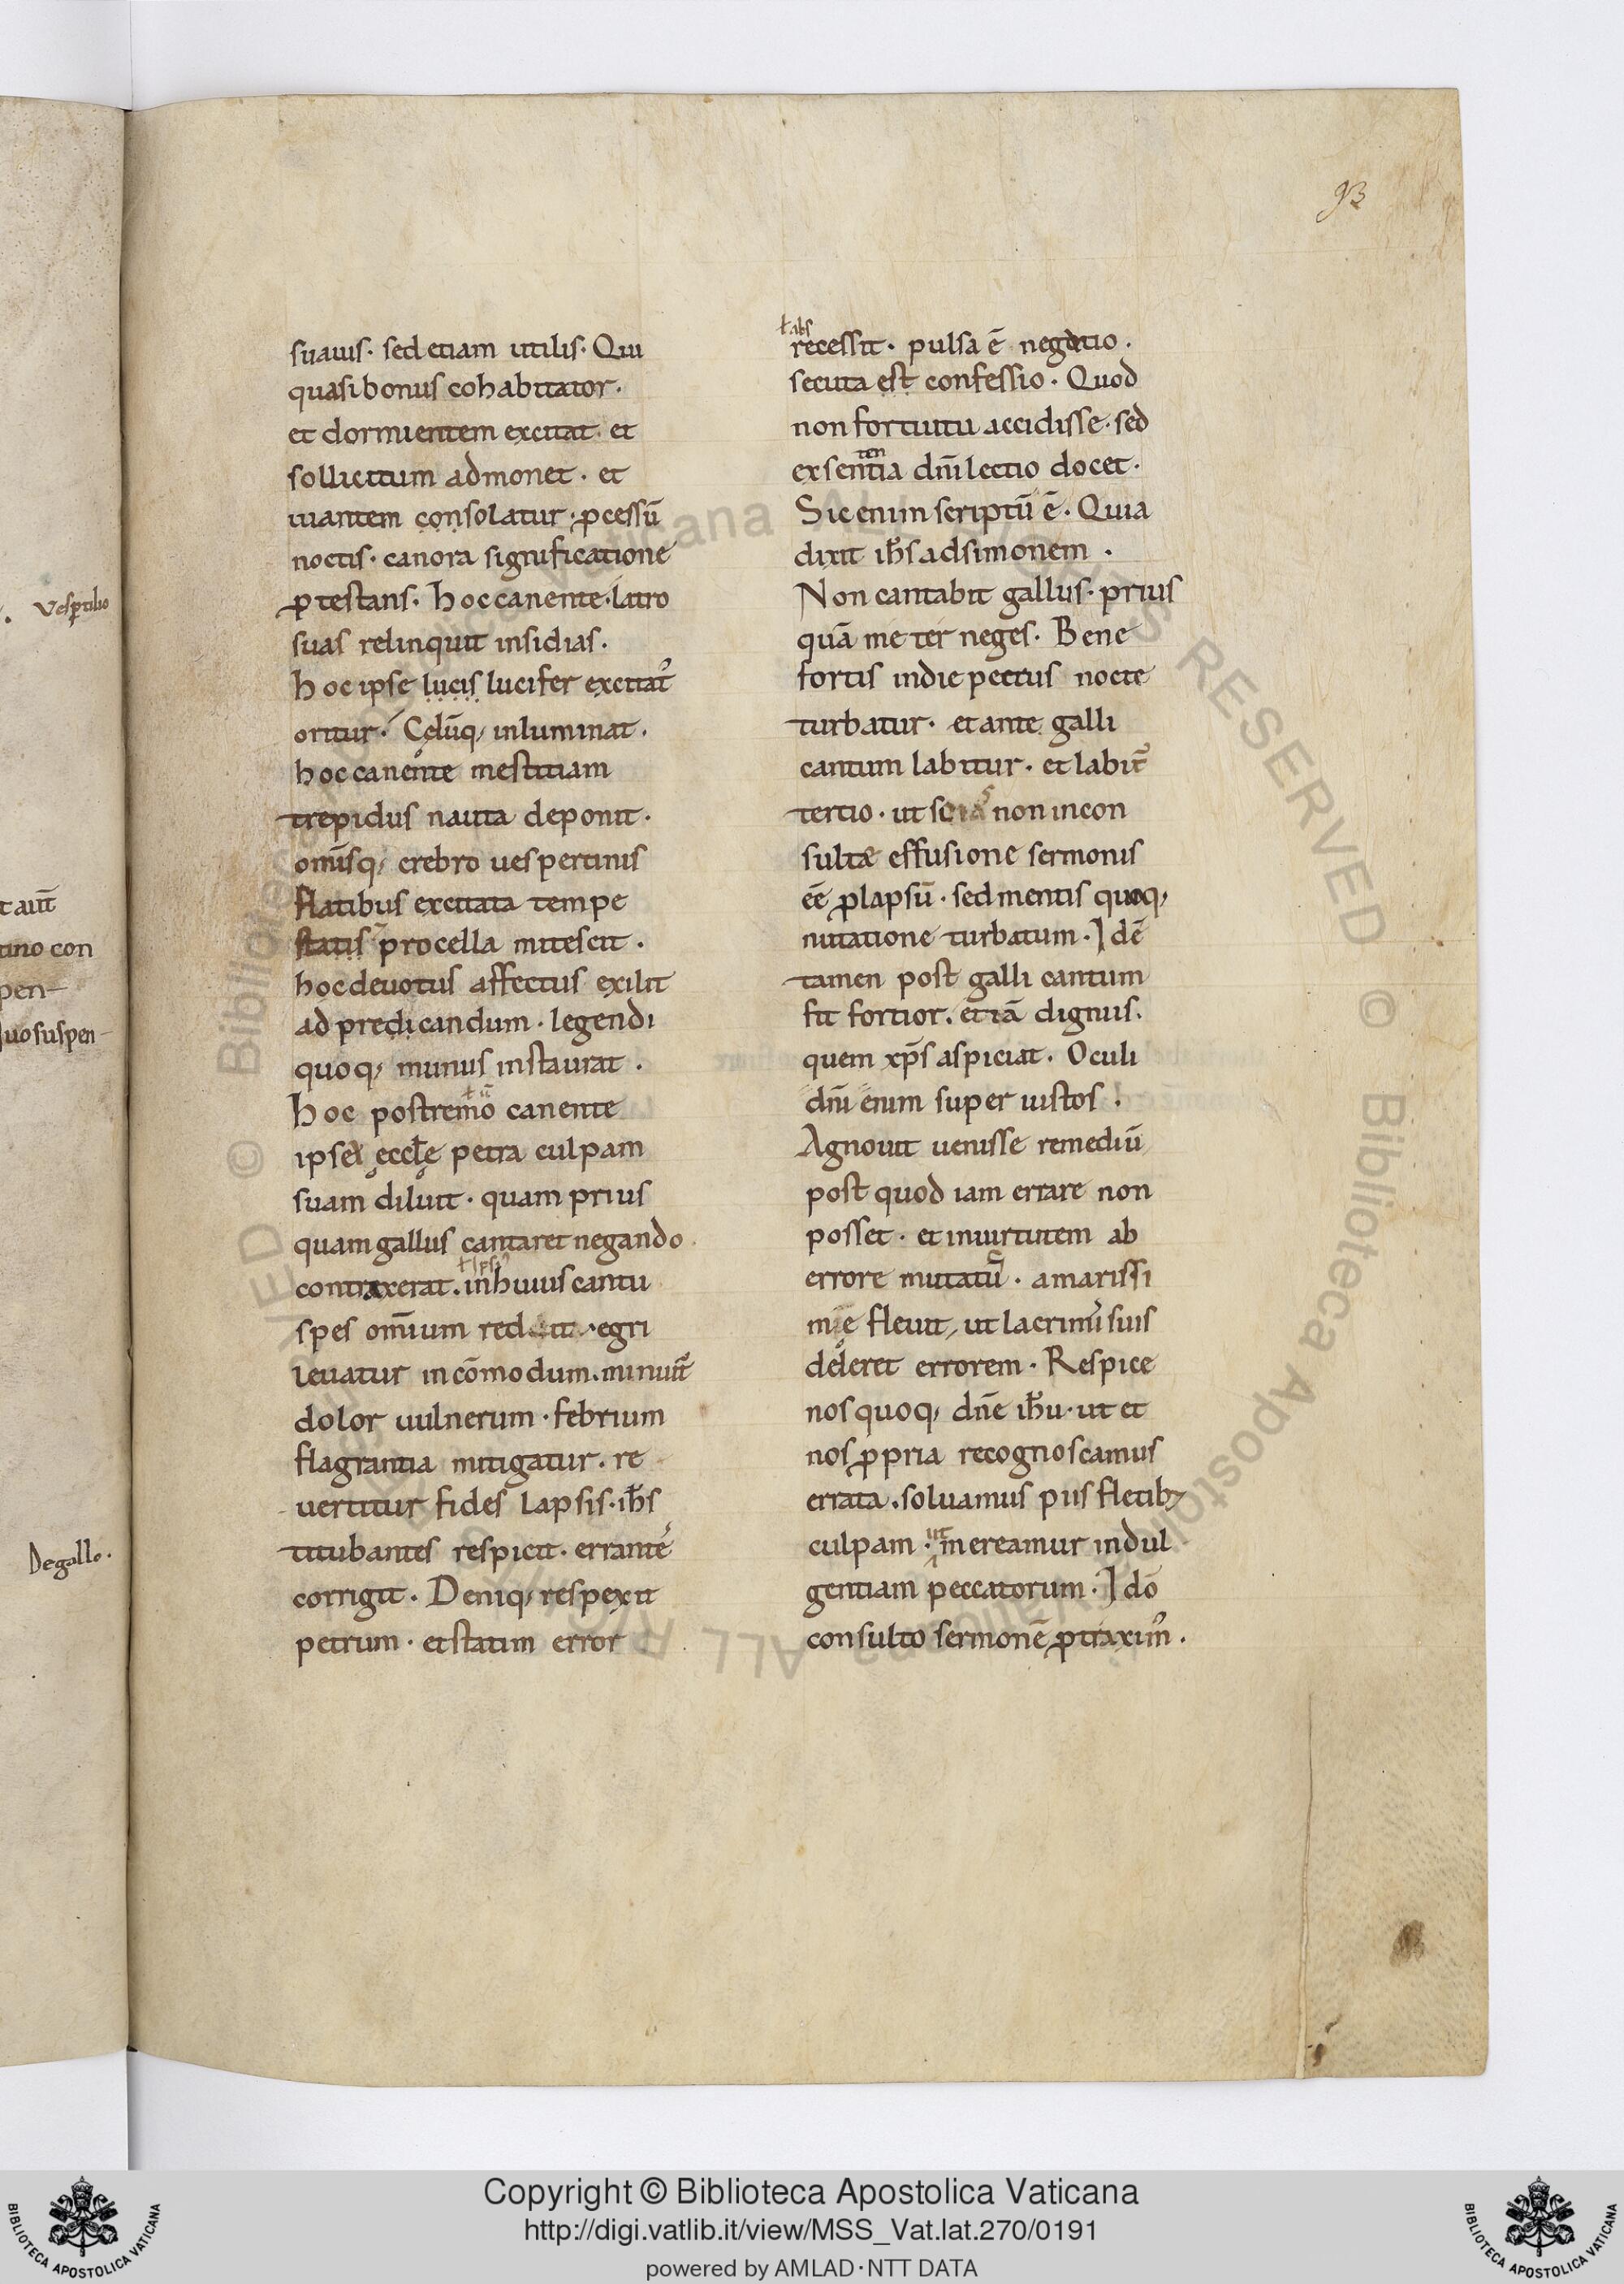 93
suauis· sed etiam utilis· Qui
quasi bonus cohabitator·
et dormientem excitat· et
sollicitum admonet· et
uiantem consolatur· ꝓcessū
noctis· canora significatione
ꝓtestans· hoc canente· latro
suas relinquit insidias·
hoc ipse lucis lucifer excitat᷒
oritur· Cęlūq; inluminat·
hoc canente mestitiam
trepidus nauta deponit·
omīsq; crebro uespertinis
flatibus excitata tempe
statis procella mitescit·
hoc deuotus affectus exilit
ad predicandum· legendi
quoq; munus instaurat·
ł ū
hoc postremo canente
ipse ęccłe petra culpam
suam diluit· quam prius
quam gallus cantaret negando·
contraxerat· in huius cantu
spes omīum redit· egri
leuatur incōmodum· minuit᷒
dolor uulnerum· febrium
flagrantia mitigatur· re
uertitur fides lapsis· ihs̄
titubantes respicit· errante᷒
corrigit· Deniq; respexit
petrum· et statim error
ł abs
recessit· pulsa ē negatio·
secuta est confessio· Quod
non fortuitu accidisse· sed
ten
ex sentia dn̄i lectio docet·
Sic enim scriptū ē· Quia
dixit ihs̄ ad simonem·
Non cantabit gallus· prius
quā me ter neges· Bene
fortis in die petrus nocte
turbatur· et ante galli
cantum labitur· et labit᷒
tertio· ut scias non incon
sultæ effusione sermonis
eē ꝓlapsū· sed mentis quoq;
nutatione turbatum· Idē
tamen post galli cantum
fit fortior· et iā dignus·
quem xp̄s aspiciat· Oculi
dn̄i enim super iustos·
Agnouit uenisse remediū
post quod iam errare non
posset· et in uirtutem ab
errore mutatū· amarissi
me fleuit, ut lacrimis suis
deleret errorem· Respice
nos quoq; dn̄e ihū· ut et
nos ꝓpria recognoscamus
errata· soluamus piis fletib;
ut
culpam· mereamur indul
gentiam peccatorum· Ido
consulto sermonē ꝓtraxim᷒·
Vesptilio
t aut̄
tino con
pen-
uo suspen-
De gallo·
Copyright © Biblioteca Apostolica Vaticana
http://digi.vatlib.it/view/MSS_Vat.lat.270/0191
powered by AMLAD·NTT DATA
BIBLIOTECA APOSTOLICA VATICANA
BIBLIOTECA APOSTOLICA VATICANA